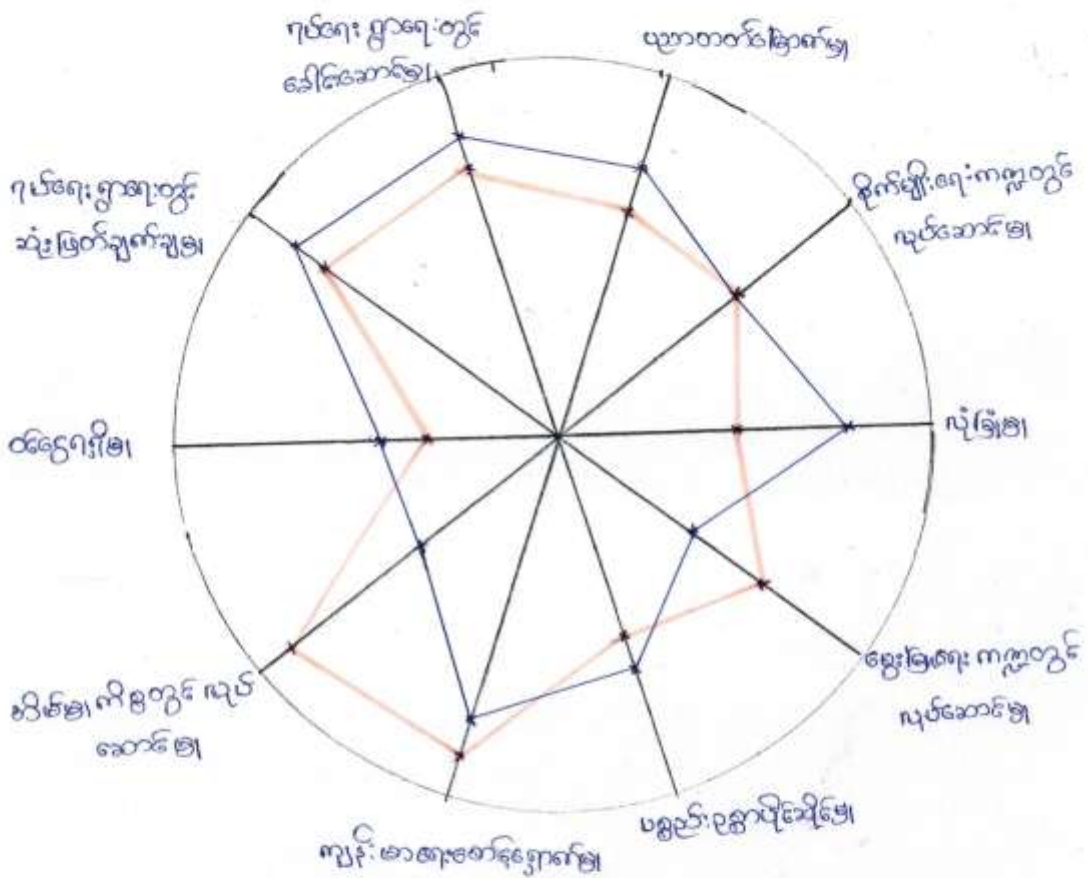 ရပ်ရေး ရွာရေးတွင်
ခေါင်းဆောင်မှု
ပညာတတ်မြောက်မှု
စိုက်ပျိုးရေးကဏ္ဍတွင်
လုပ်ဆောင်မှု
လုံခြုံမှု
မွေးမြူရေး ကဏ္ဍတွင်
လုပ်ဆောင်မှု
ပစ္စည်းဥစ္စာပိုင်ဆိုင်မှု
ကျန်းမာရေးစောင့်ရှောက်မှု
အိမ်မှု ကိစ္စတွင် လုပ်
ဆောင်မှု
ဝင်ငွေရရှိမှု
ရပ်ရေး ရွာရေးတွင်
ဆုံးဖြတ်ချက်ချမှု